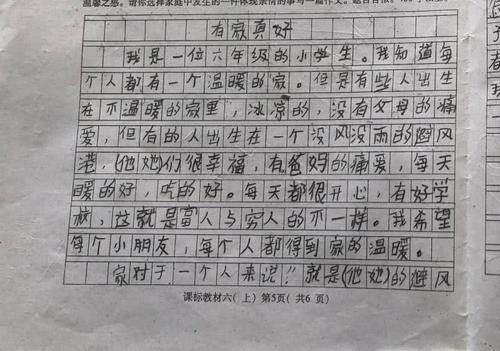 温馨之感。请你选择家庭中发生的一件体现亲情的事写一篇作文。题目自拟。
有家真好
我是一位六年级的小学生。我知道每
个人都有一个温暖的家。但是有些人出生
在不温暖的家里，冰凉的，没有父母的痛
爱，但有的人出生在一个没风没雨的避风
港，(他她)们很幸福，有爸妈的痛爱，每天
暖的好，吃的好。每天都很开心，有好学
校，这就是富人与穷人的不一样。我希望
每个小朋友，每个人都得到家的温暖。
家对于一个人来说!！就是(他她)的避风
课标教材六(上) 第5页(共6页)